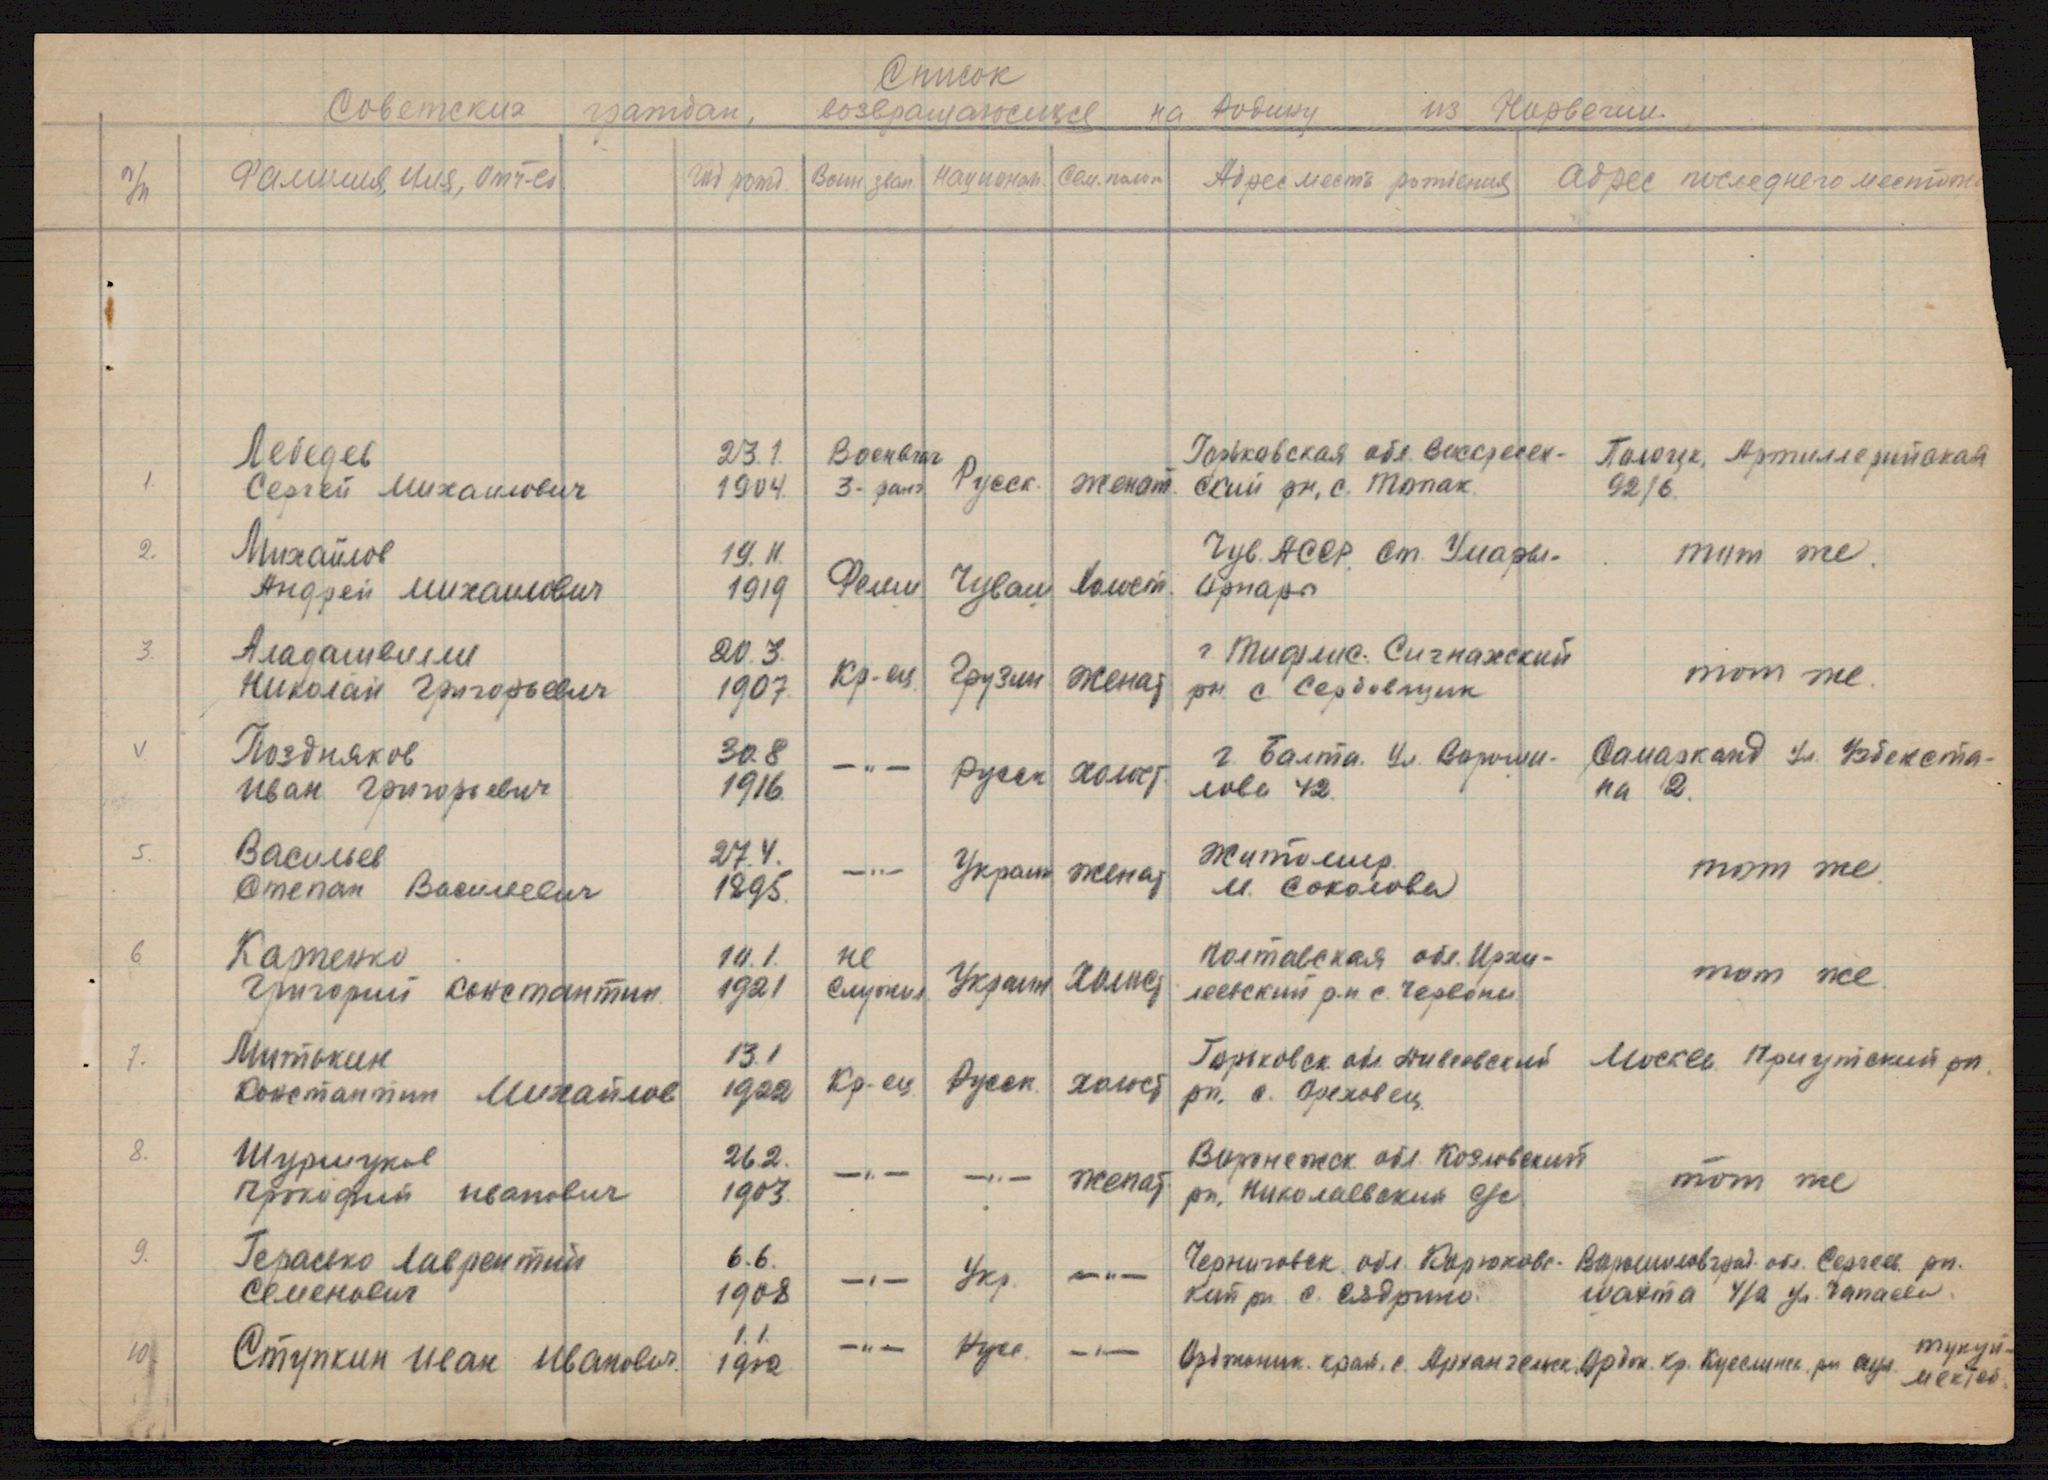 Список
Советских граждан, возвращающихся на Родину из Норвегии.
п/п Фамилия, Имя, Отч-во Год рожд. Воин. зван. Национал. Сем. полож. Адрес место рождения Адрес последнего местож
1. Лебедев
Сергей Михаилович 23.1. 1904 Военвич 3-ранг Русск. женат. Горьковская обл. Воскресен-
ский рн, с. Топак. Полоцк, Артиллерийская
92/6.
2. Михайлов
Андрей Михаилович 19.11. 1919 Чуваш Холост. Чув. АССР. Ст. Умары-
Орнары тот же.
3. Аладашвили
Николай Григорьевич 20.3. 1907. Кр-ец. Грузин женат г Тифлис. Сигнахский
рн. с Сербовщик тот же.
V Поздняков
Иван Григорьевич 30.8 1916. —"— Русск холост. г. Балта. Ул. Вороши-
лова 42. Самарканд Ул. Узбекста-
на 2.
5. Васильев
Степан Васильевич 27.4. 1895. —"— Украин женат Житомир
м. Соколова тот же.
6 Карженко
Григорий Константин. 10.1. 1921 не служил Украин Холост Полтавская обл. Ирхи-
леевский р.н с. Червоны тот же.
7. Митькин
Константин Михайлов 13.1 1922 Кр-ец Русск. холост Горьковск. обл. Дивеовский
рн. с. Ореховец. Москва Приутский рн.
8. Шуршуков
Прокофий Иванович 26.2. 1903. —"— —"— женат. Воронежск обл. Козловский
рн, Николаевский с/с тот же
9. Герасько Лаврентий
Семенович 6.6. 1908 —"— Укр. —"— Черниговск. обл. Корюковс-
кий рн с. Сядрино. Ворошиловград. обл. Сергеев рн.
шахта 4/2 ул. Чапаева.
10 Ступкин Иван Иванович. 1.1. 1902 —"— Русс. —"— Орджоник. край, с. Архангельск. Ордж. кр. рн аул. тукуй-
мектеб.